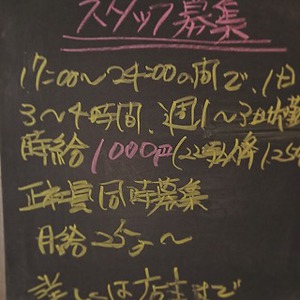 スタッフ募集
17:00〜24:00の間で、1日
3〜4時間、週1〜3日
時給1000円(22時以降125
正社員同時募集
月給25万〜
詳しくは店主まで